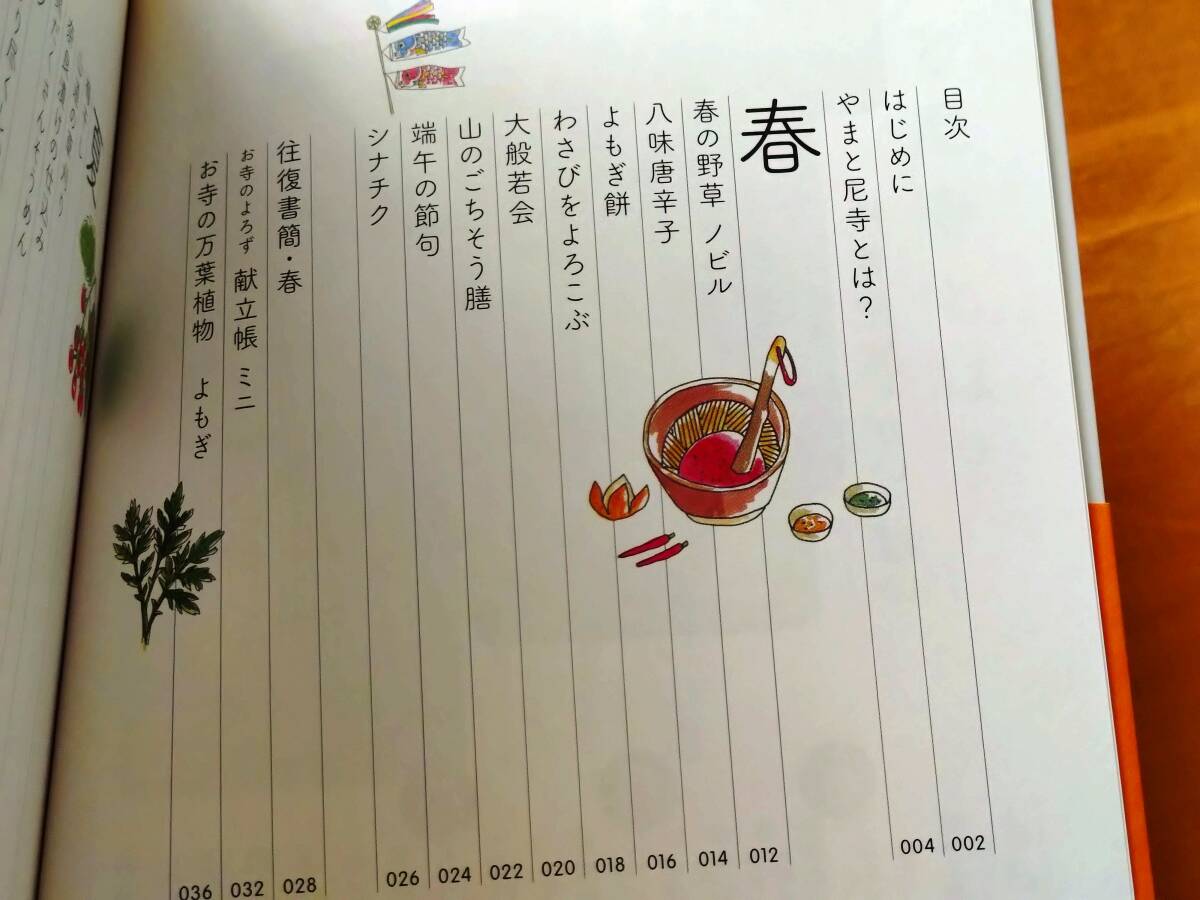 目次
はじめに 002
やまと尼寺とは? 004
春
春の野草 ノビル 012
八味唐辛子 014
よもぎ餅 016
わさびをよろこぶ 018
大般若会 020
山のごちそう膳 022
端午の節句 024
シナチク 026
往復書簡・春 028
お寺のよろず 献立帳 ミニ 032
お寺の万葉植物 よもぎ 036